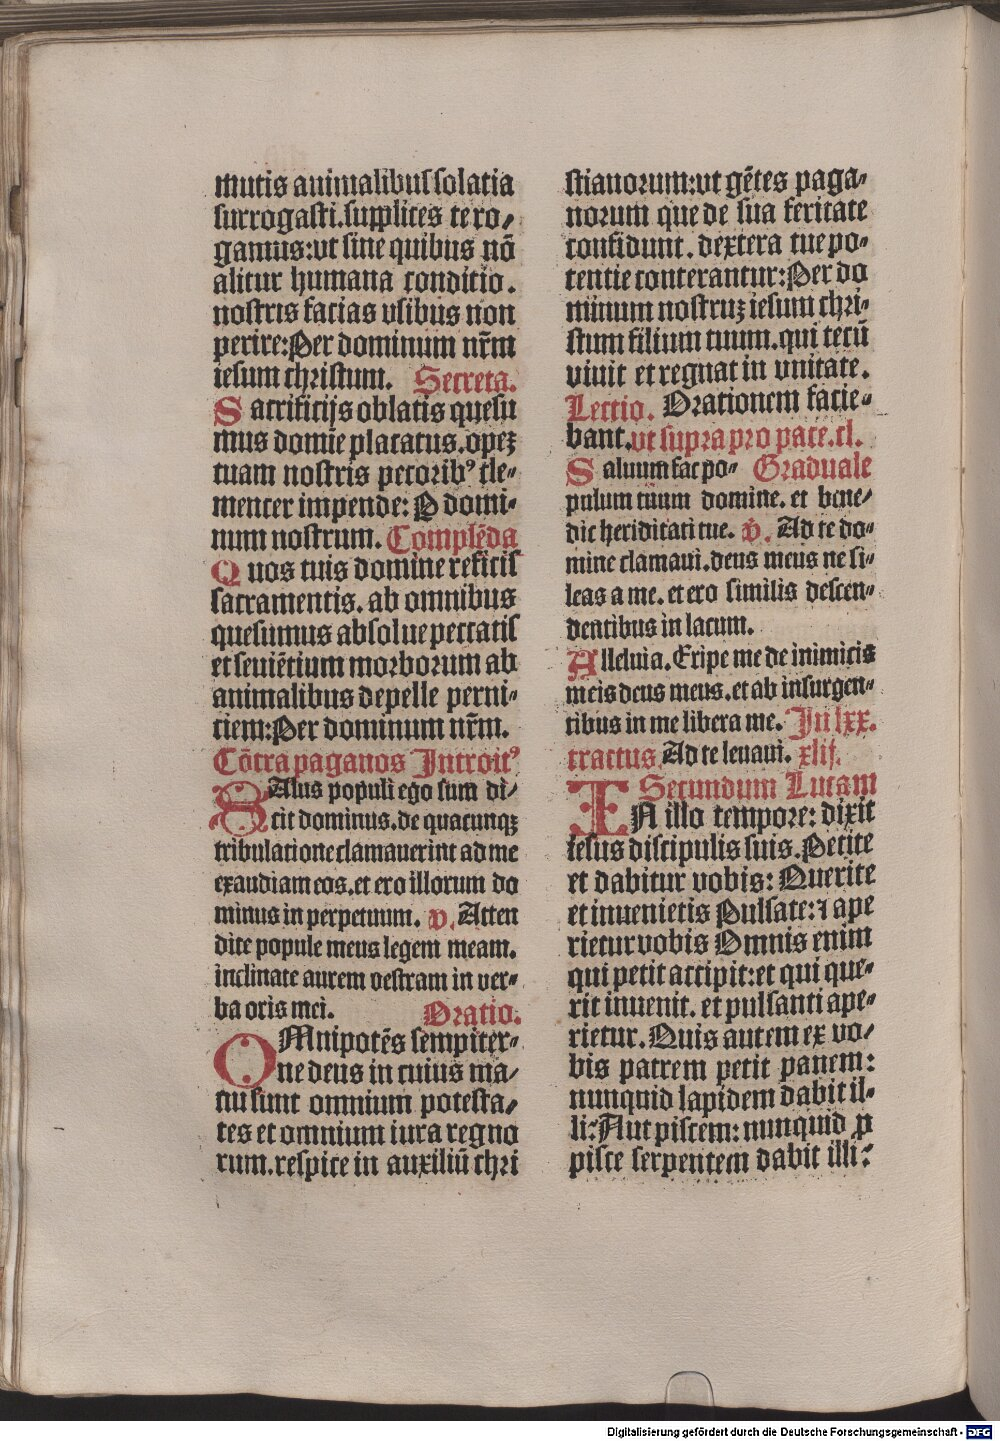 mutis animalibus solatia
surrogasti.supplices te ro⸗
gamus:vt sine quibus nō
alitur humana conditio.
nostris facias vsibus non
perire:Per dominum nr̄m
iesum christum. Secreta.
Sacrificijs oblatis quesu
mus domīe placatus.opeꝫ
tuam nostris pecorib⁹ cle⸗
menter impende: P domi⸗
num nostrum. Complēda
Quos tuis domine reficis
sacramentis. ab omnibus
quesumus absolue peccatis
et seuiētium morborum ab
animalibus depelle perni⸗
ciem:Per dominum nr̄m.
Cōtra paganos Introit⁹
SAlus populi ego sum di⸗
cit dominus.de quacunqꝫ
tribulatione clamauerint ad me
exaudiam eos.et ero illorum do
minus in perpetuum. v. Atten
dite popule meus legem meam.
inclinate aurem vestram in ver⸗
ba oris mei. Oratio.
OMnipotēs sempiter⸗
ne deus in cuius ma⸗
nu sunt omnium potesta⸗
tes et omnium iura regno
rum.respice in auxiliū chri
stianorum:vt gētes paga⸗
norum que de sua feritate
confidunt. dextera tue po⸗
tentie conterantur:Per do
minum nostruꝫ iesum chri⸗
stum filium tuum.qui tecū
viuit et regnat in vnitate.
Lectio. Orationem facie⸗
bant.vt supra pro pace.cl.
Saluum fac po⸗ Graduale
pulum tuum domine. et bene⸗
dic heriditati tue. v. Ad te do⸗
mine clamaui.deus meus ne si⸗
leas a me. et ero similis descen⸗
dentibus in lacum.
Alleluia. Eripe me de inimicis
meis deus meus.et ab insurgen⸗
tibus in me libera me. In lxx.
tractus Ad te leuaui. xlij.
Secundum Lucam
IN illo tempore: dixit
iesus discipulis suis.Petite
et dabitur vobis: Querite
et inuenietis Pulsate:⁊ ape
rietur vobis Omnis enim
qui petit accipit:et qui que⸗
rit inuenit. et pulsanti ape⸗
rietur. Quis autem ex vo⸗
bis patrem petit panem:
nunquid lapidem dabit il⸗
li? Aut piscem: nunquid ꝓ
pisce serpentem dabit illi?
Digitalisierung gefördert durch die Deutsche Forschungsgemeinschaft - DFG